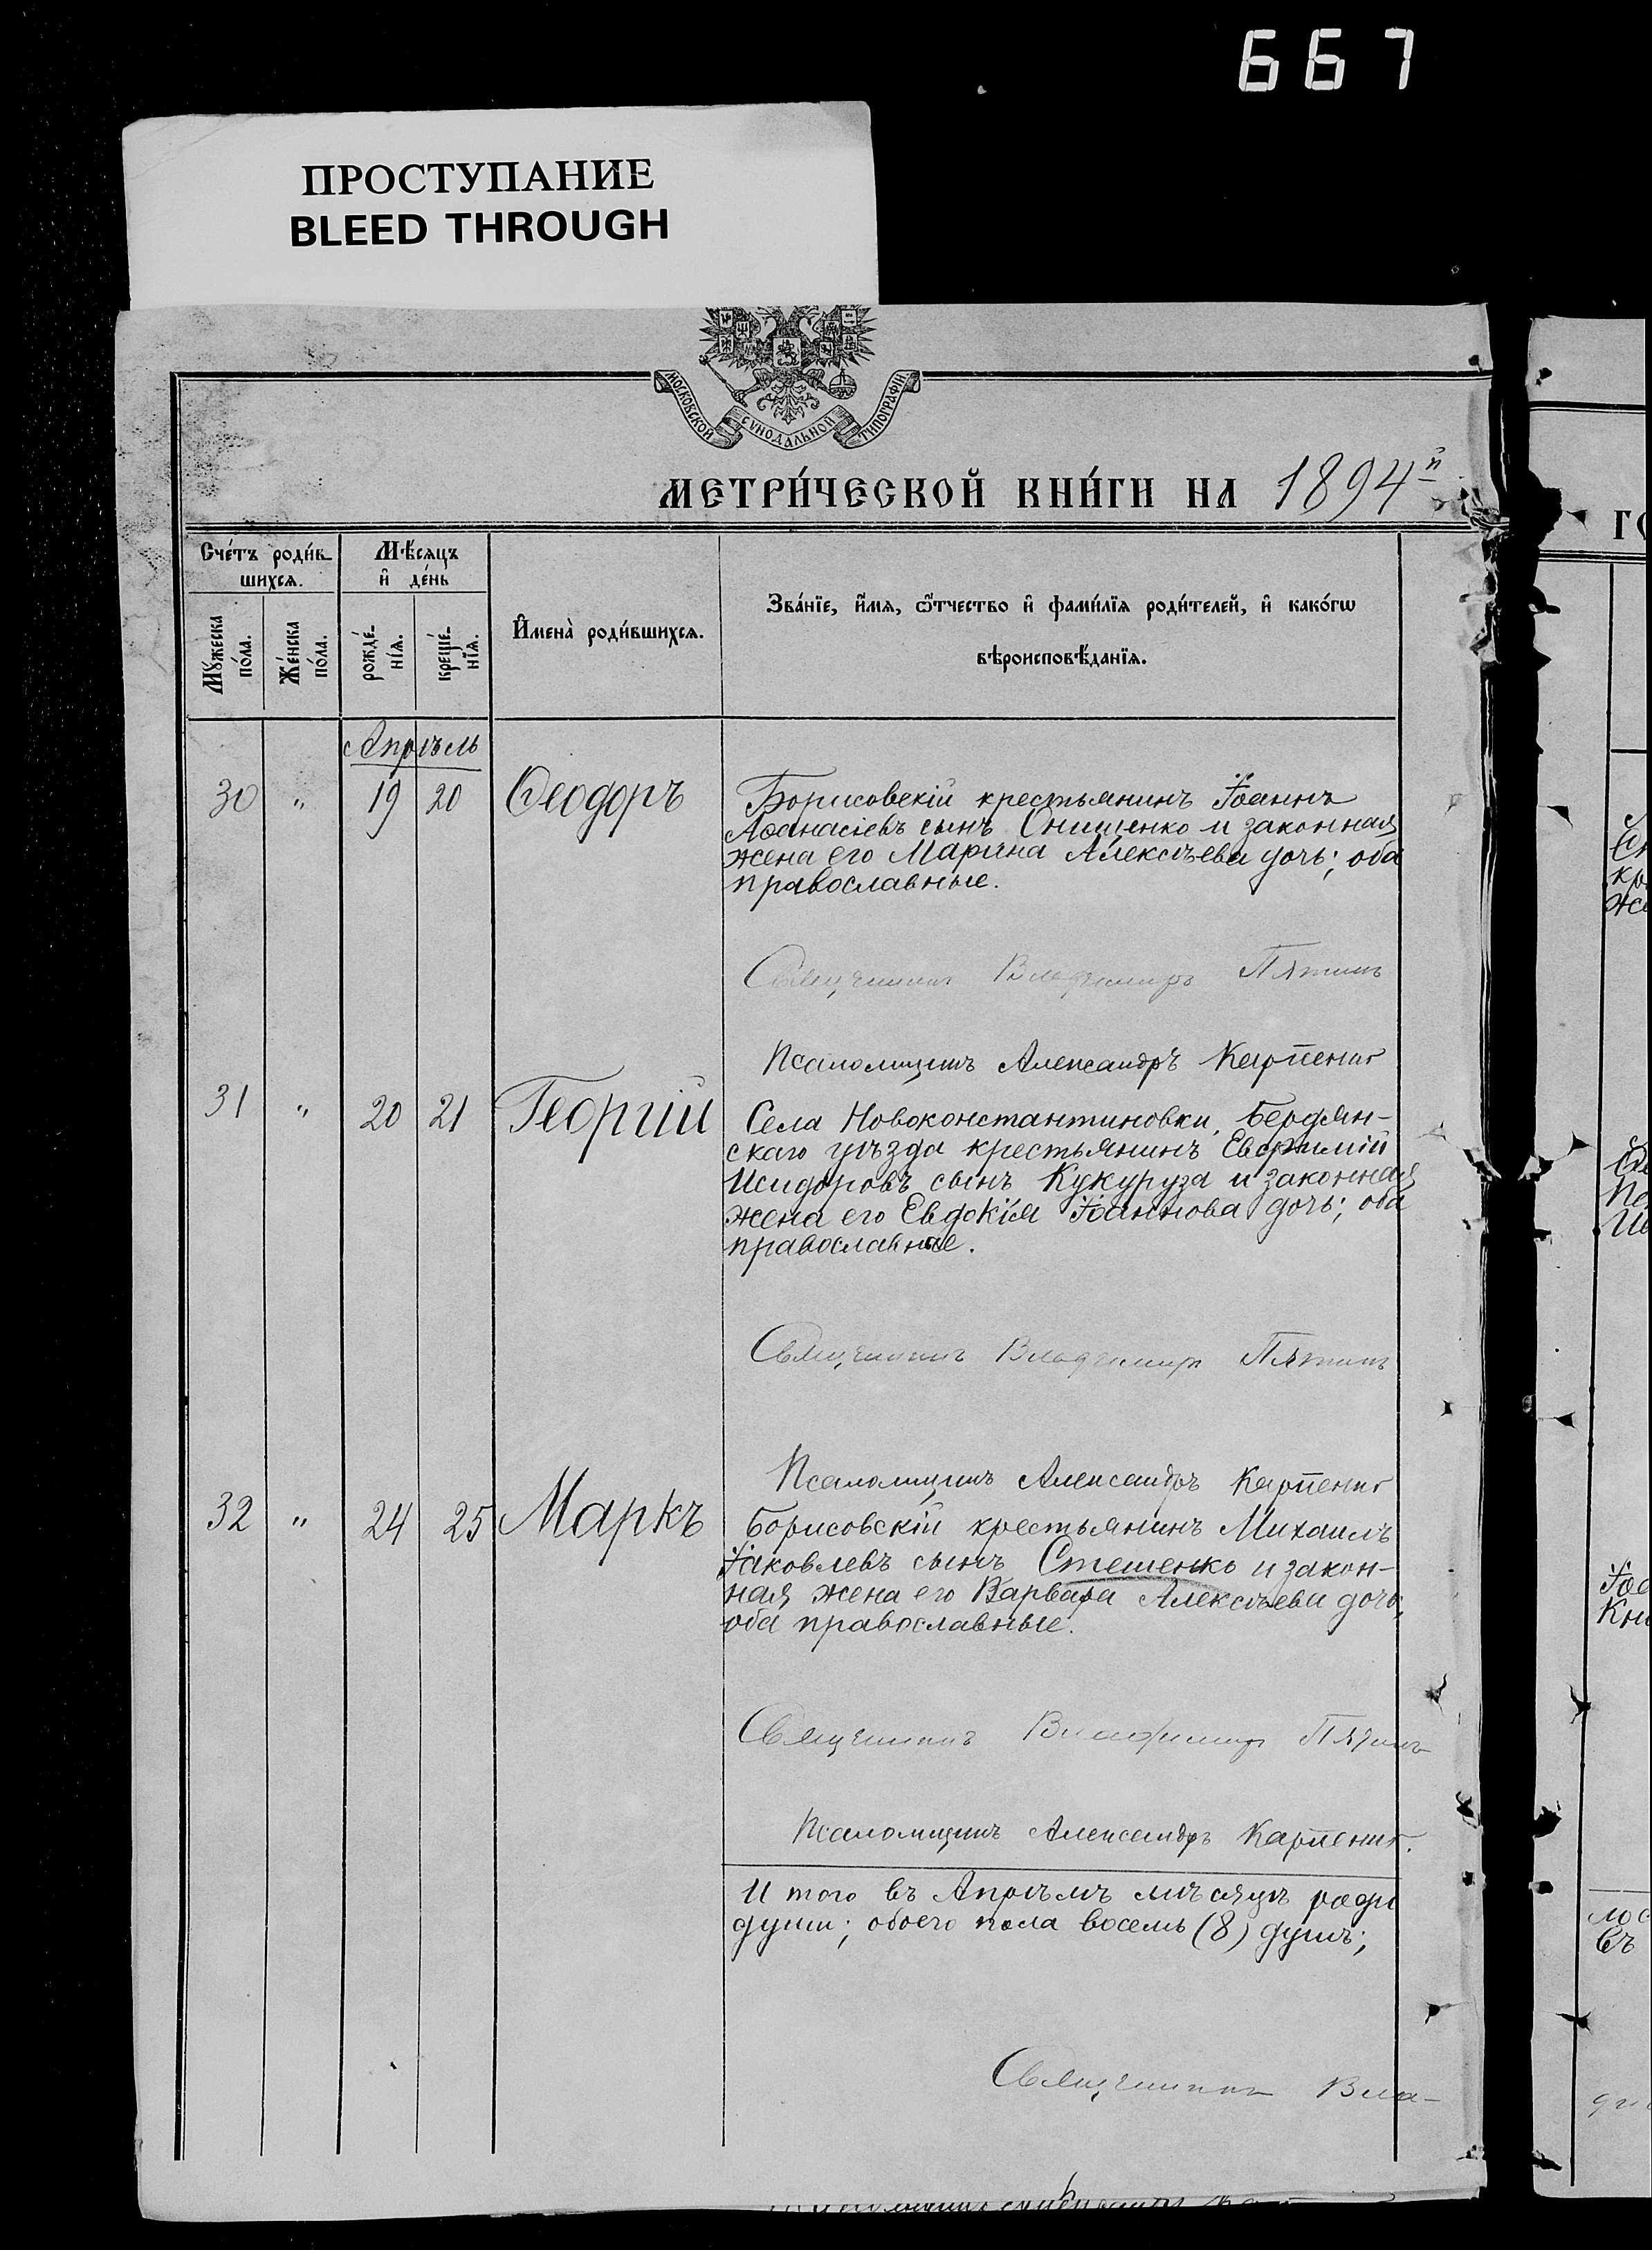 667
ПРОСТУПАНИЕ
BLEED THROUGH
МОСКОВСКОЙ СѴНОДАЛЬНОЙ ТИПОГРАФІИ
МЕТРИ́ЧЕСКОЙ КНИ́ГИ НА 1894й
Сче́тъ роди́в-
шихсѧ.
Мѣ́сѧцъ
и҆ де́нь
И҆мена̀ роди́вшихсѧ.
Зва́нїе, и҆́мѧ, ѻ҆́тчество и҆ фами́лїѧ роди́телей, и҆ како́гѡ
вѣроисповѣ́данїѧ.
Мꙋ́жеска
по́ла.
Же́нска
по́ла.
рожде́-
нїѧ.
креще́-
нїѧ.
Апрѣль
30 " 19 20 Ѳеодоръ
Борисовскій крестьянинъ Іоаннъ
Аѳанасіевъ сынъ Онищенко и законная
жена его Марина Алексѣева дочь; оба
православные.
Священникъ Владимиръ Пятинъ
Псаломщикъ Александръ
31 " 20 21 Георгій
Села Новоконстантиновки, Бердян-
скаго уѣзда крестьянинъ Евфимій
Исидоровъ сынъ Кукуруза и законная
жена его Евдокія Іоаннова дочь; оба
православные.
Священникъ Владимиръ Пятинъ
Псаломщикъ Александръ
32 " 24 25 Маркъ
Борисовскій крестьянинъ Михаилъ
Іаковлевъ сынъ Стешенко и закон-
ная жена его Варвара Алексѣева дочь;
оба православные.
Священникъ Владимиръ Пятинъ
Псаломщикъ Александръ
И того въ Апрѣлѣ мѣсяцѣ роди
души; обоего пола восемь (8) душъ;
Священникъ Вла-